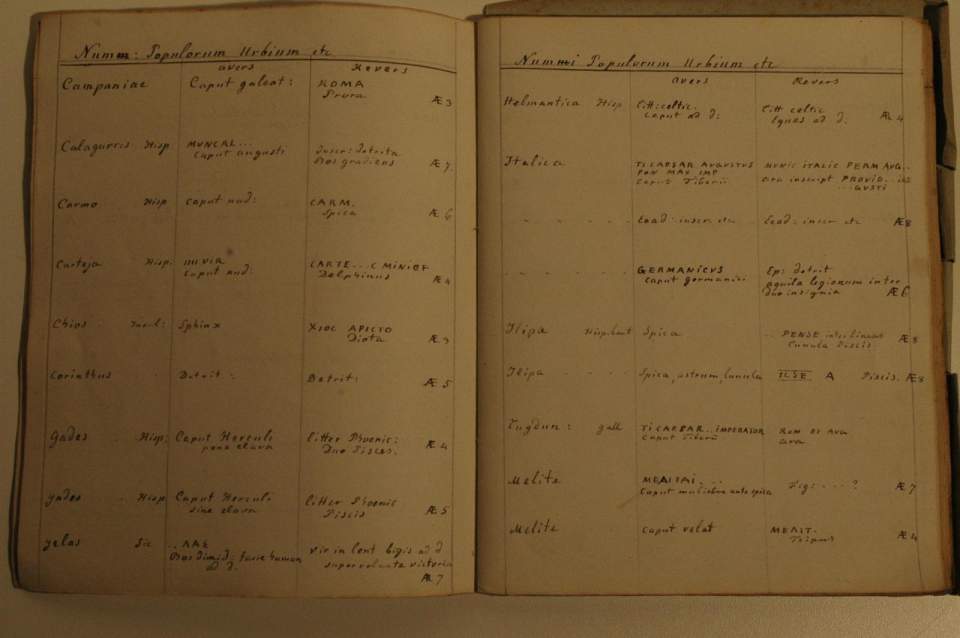 Numm: Populorum Urbium etc
avers Revers
Campaniae Caput galeat: ROMA
Prora Æ 3
Calagurris Hisp MUNCAL... Inscr: detrita
Caput augusti Bos gradiens Æ 7
Carmo Hisp Caput nud: CARM.
Spica Æ 6
Carteja Hisp. IIII VIR CARTE...C MINIEF
Caput nud: Delphinus Æ 4
Chios Insul: Sphinx ΧΙΟC ΑΡΙCΤΟ
Diota Æ 3
Corinthus Detrit: Detrit: Æ 5
Gades Hisp: Caput Herculi Litter Phoenic: Æ 4
pone clava Duo Pisces.
Gades Hisp Caput Herculi Litter Phoenic
sine clava Piscis Æ 5
Gelas Sic ..ΛΑΣ Vir in lent bigis ad d
Bos dimid: facie human supervolante victoria
ad d. Æ 7
Nummi Populorum Urbium etc
avers Revers
Helmantica Hisp Litt: celtic. Litt celtic
Caput ad d: Eques ad d. Æ 4
Italica TI CAESAR AUGUSTUS MUNIC ITALIC PERM AUG..
PON MAX IMP ara inscript PROVID...
Caput Tiberii ...GUSTI
Ead: inscr. etc Ead: inscr etc Æ 8
GERMANICVS Ep: detrit
Caput germanici aquila legionum inter
duo insignia Æ 6
Ilipa Spica ..PENSE inter lineas Æ 8
Lunula Piscis
Ilipa Spica, astrum, lunula ILSE A Piscis. Æ 8
Lugdun: gall TI CAESAR..IMPERATOR ROM ET AUG
Caput Tiberii ara
Melite ΜΕΛΙΤΑΙ...
Caput muliebre ante spica ...? Æ 7
Melite Caput velat ΜΕΛΙΤ.
Tripus Æ 4